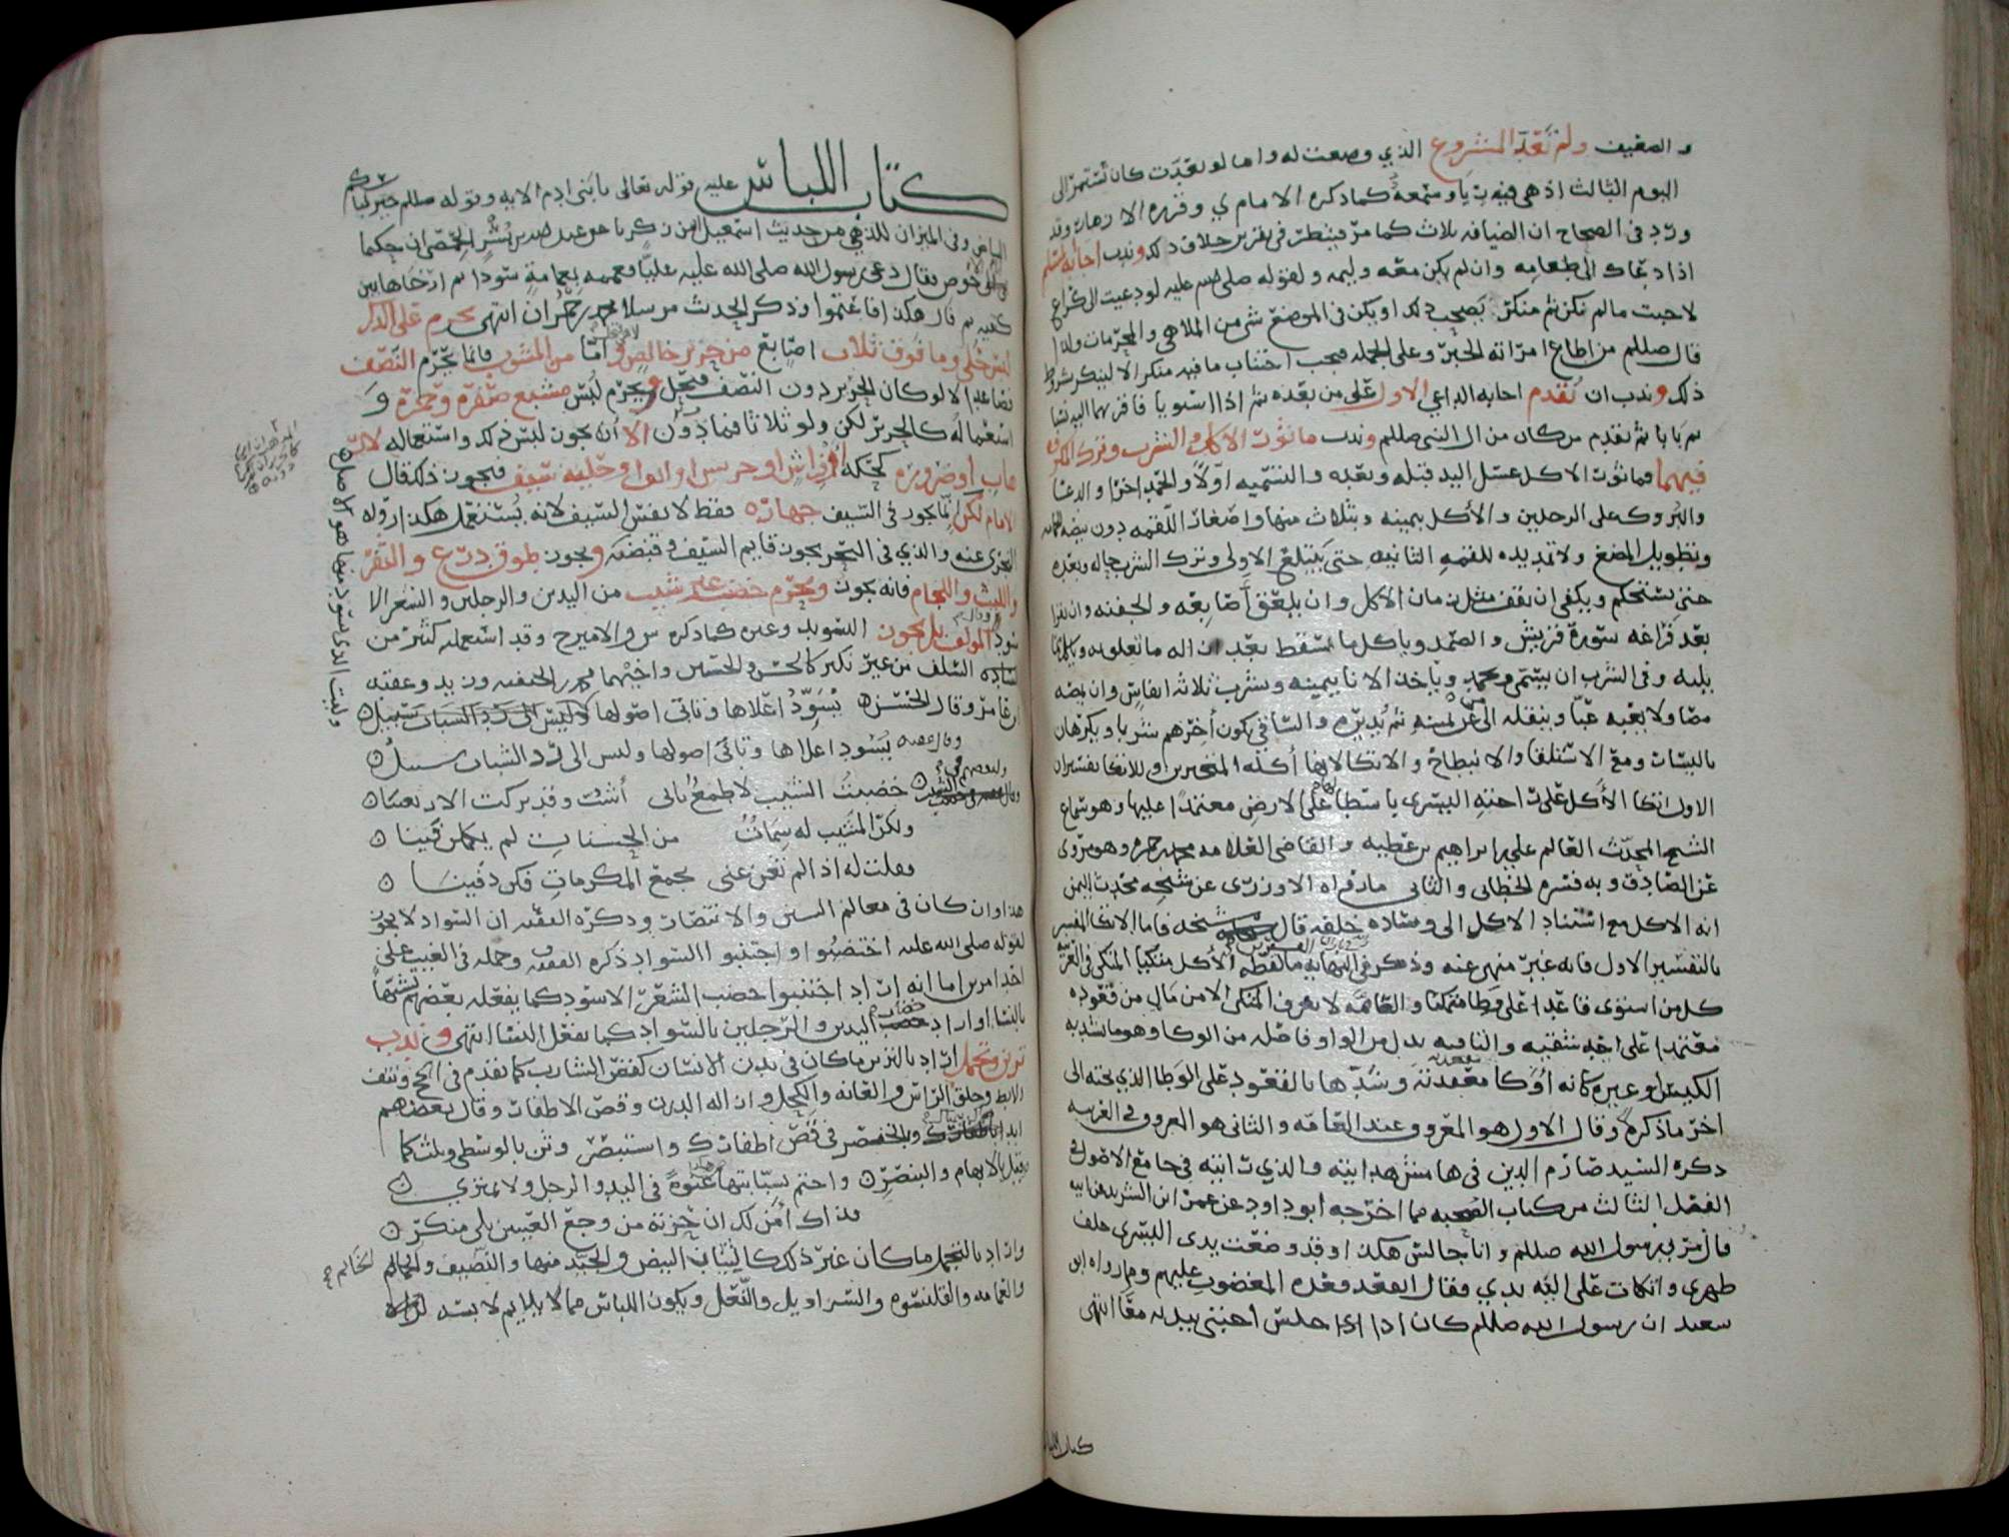 والمضيف ولم تعد المشروع الذي وضعت له واما لو تعدت كان تستمر الى
اليوم الثالث اذ هي فيه ريا وسمعة كما ذكره الامام ي وقرره الازهار وقد
ورد في الصحاح ان الضيافه ثلاث كما مر فينظر في تقرير خلاف ذلك وندب اجابة المسلم
اذا دعاك الى طعامه وان لم يكن معه وليمه ولقوله صلى الله عليه لو دعيت الى كراع
لاجبت ما لم يكن ثم منكر يصحب ذلك او يكن في الموضع شي من الملاهي والمحرمات ولذا
قال صللم من اطاع امراته الخبر وعلى الجمله فيجب اجتناب ما فيه منكر الا لينكر بشروط
ذلك وندب ان تقدم اجابه الداعي الاول على من بعده ثم اذا استويا فاقربهما اليه نسبا
ثم بابا ثم تقديم من كان من ال النبي صللم وندب ماثورات الاكل والشرب وترك المكروه
فيهما فماثورات الاكل غسل اليد قبله وبعده والتسميه اولا والحمد اخرا والدعا
والبروك على الرجلين والاكل بيمينه وبثلاث منها واصغار اللقمه دون بيضه
وتطويل المضغ ولا تمديده للقمه الثانيه حتى يبتلع الاولى وترك الشرب حاله وبعده
حتى يستحكم ويكفي ان يقف مثل زمان الاكل وان يلعق اصابعه والجفنه وان يقرا
بعد فراغه سورة قريش والصمد وياكل ما سقط بعد ازاله ما تعلق به وياكل مما
يليه وفي الشرب ان يسمي ويحمد وياخذ الانا بيمينه ويشرب ثلاثه انفاس وان يمصه
مصا ولا يعبه عبا وينقله الى من عن يمينه ثم يديره والساقي يكون اخرهم شربا ويكرهان
باليسار ومع الاستلقا والانبطاح والاتكا لانها اكله المتجبرين وللاتكا تفسيران
الاول اتكا الاكل على راحته اليسرى باسطا لها على الارض معتمدا عليها وهو سماع
الشيخ المحدث العالم علي بن ابراهيم بن عطيه والقاضي العلامه محمد بن حمزه وهو مروي
عن الصادق وبه فسره الخطابي والثاني ما رواه الاوزري عن شيخه محدث اليمن
انه الاكل مع استناد الاكل الى وساده خلفه قال شيخه فاما الاتكا المفسر
بالتفسير الاول فانه غير منهي عنه وذكر في النهايه ما لفظه الاكل متكيا المتكى في العربيه
كل من استوى قاعدا على وطا متمكنا والعامه لا تعرف المتكى الا من مال من قعوده
معتمدا على احد شقيه والتا فيه بدل من الواو فاصله من الوكا وهو ما يشد به
الكيس او غيره كانه اوكا مقعدته وشدها بالقعود على الوطا الذي تحته الى
اخر ما ذكره وقال الاول هو المعروف عند العامه والثاني هو المعروف في العربيه
ذكره السيد صارم الدين في هامش هدايته والذي رايته في جامع الاصول في
الفصل الثالث من كتاب الصحبه مما اخرجه ابو داود عن عمرو ابن الشريد عن ابيه
قال مر بي رسول الله صللم وانا جالس هكذا وقد وضعت يدي اليسرى خلف
ظهري واتكات على الية يدي فقال اتقعد قعدة المغضوب عليهم وما رواه ابو
سعيد ان رسول الله صللم كان اذا جلس احتبى بيديه معا انتهى
كتاب اللباس
كتاب اللباس عليه قوله تعالى يا بني ادم الايه وقوله صللم خير ثيابكم
البياض وفي الميزان للذهبي من حديث اسمعيل ابن زكريا عن عبد الله بن بسر الحمصي ان حكيما
فقال دعى رسول الله صلى الله عليه عليا فعممه بعمامة سودا ثم ارخاها بين
كتفيه ثم قال هكذا فاعتموا وذكر الحديث مرسلا انتهى يحرم على الذكر
لبس حلي وما فوق ثلاث اصابع من حرير خالص واما من المشوب فانما يحرم النصف
فصاعدا لا لو كان الحرير دون النصف فيحل ويحرم لبس مشبع صفرة وحمرة و
استعماله كالحرير لكن ولو ثلاثا فما دون الا ان يجوز لبس ذلك واستعماله لارهاب
او ضروره كحكة او فراش او حليه سيف فيجوز ذلك قال
الامام لكن انما يجوز في السيف جهازه فقط لا نفس السيف لانه يستعمل هكذا رواه
النجري عنه والذي في البحر يجوز قايم السيف وقبضته ويجوز طوق درع والثفر
واللبب واللجام فانه يجوز ويحرم خضب غير شيب من اليدين والرجلين والشعر الا
المولف بل يجوز التسويد وغيره كما ذكره س والامير ح وقد استعمله كثير من
الساده السلف من غير نكير كالحسن والحسين واخيهما محمد بن الحنفيه وزيد وعقبه
وقال الحسن يسود اعلاها وتاتي اصولها وليس الى رد الشباب سبيل
وقال عقبه يسود اعلاها وتابى اصولها وليس الى رد الشباب سبيل
خضبت الشيب لا طمع باني اشت وقد بركت الاربعينا
ولكن المشيب له سمات من الحسنات لم يكملن فينا
فقلت له اذا لم تغن عني بجمع المكرمات فكن دفينا
هذا وان كان في معالم السنن والانتصار وذكره الفقيه ان السواد لا يجوز
لقوله صلى الله عليه اختضبوا واجتنبوا السواد ذكره الفقيه ف وحمله في الغيث على
احد امرين اما انه اراد اجتنبوا خضب الشعر الاسود كما يفعله بعضهم تشبها
بالنسا او اراد خضاب اليدين والرجلين بالسواد كما يفعل النسا انتهى وندب
تزين وتجمل اراد بالتزين ما كان في بدن الانسان كقص الشارب كما تقدم في الحج ونتف
الابط وحلق الراس والعانه والكحل وازاله الدرن وقص الاظفار وقال بعضهم
في قص اظفارك واستبصر وثن بالوسطى وثلث كما
قيل بالابهام والبنصر واختم بسبابتها في اليد والرجل ولا تمتري
فذاك امن لك ان حزته من وجع العينين يا منكر
واراد بالتجمل ما كان غير ذلك كالثياب البيض والجيد منها والنضيف والخاتم
والعمامه والقلنسوه والسراويل والنعل ويكون اللباس مما لا يلايم لابسه